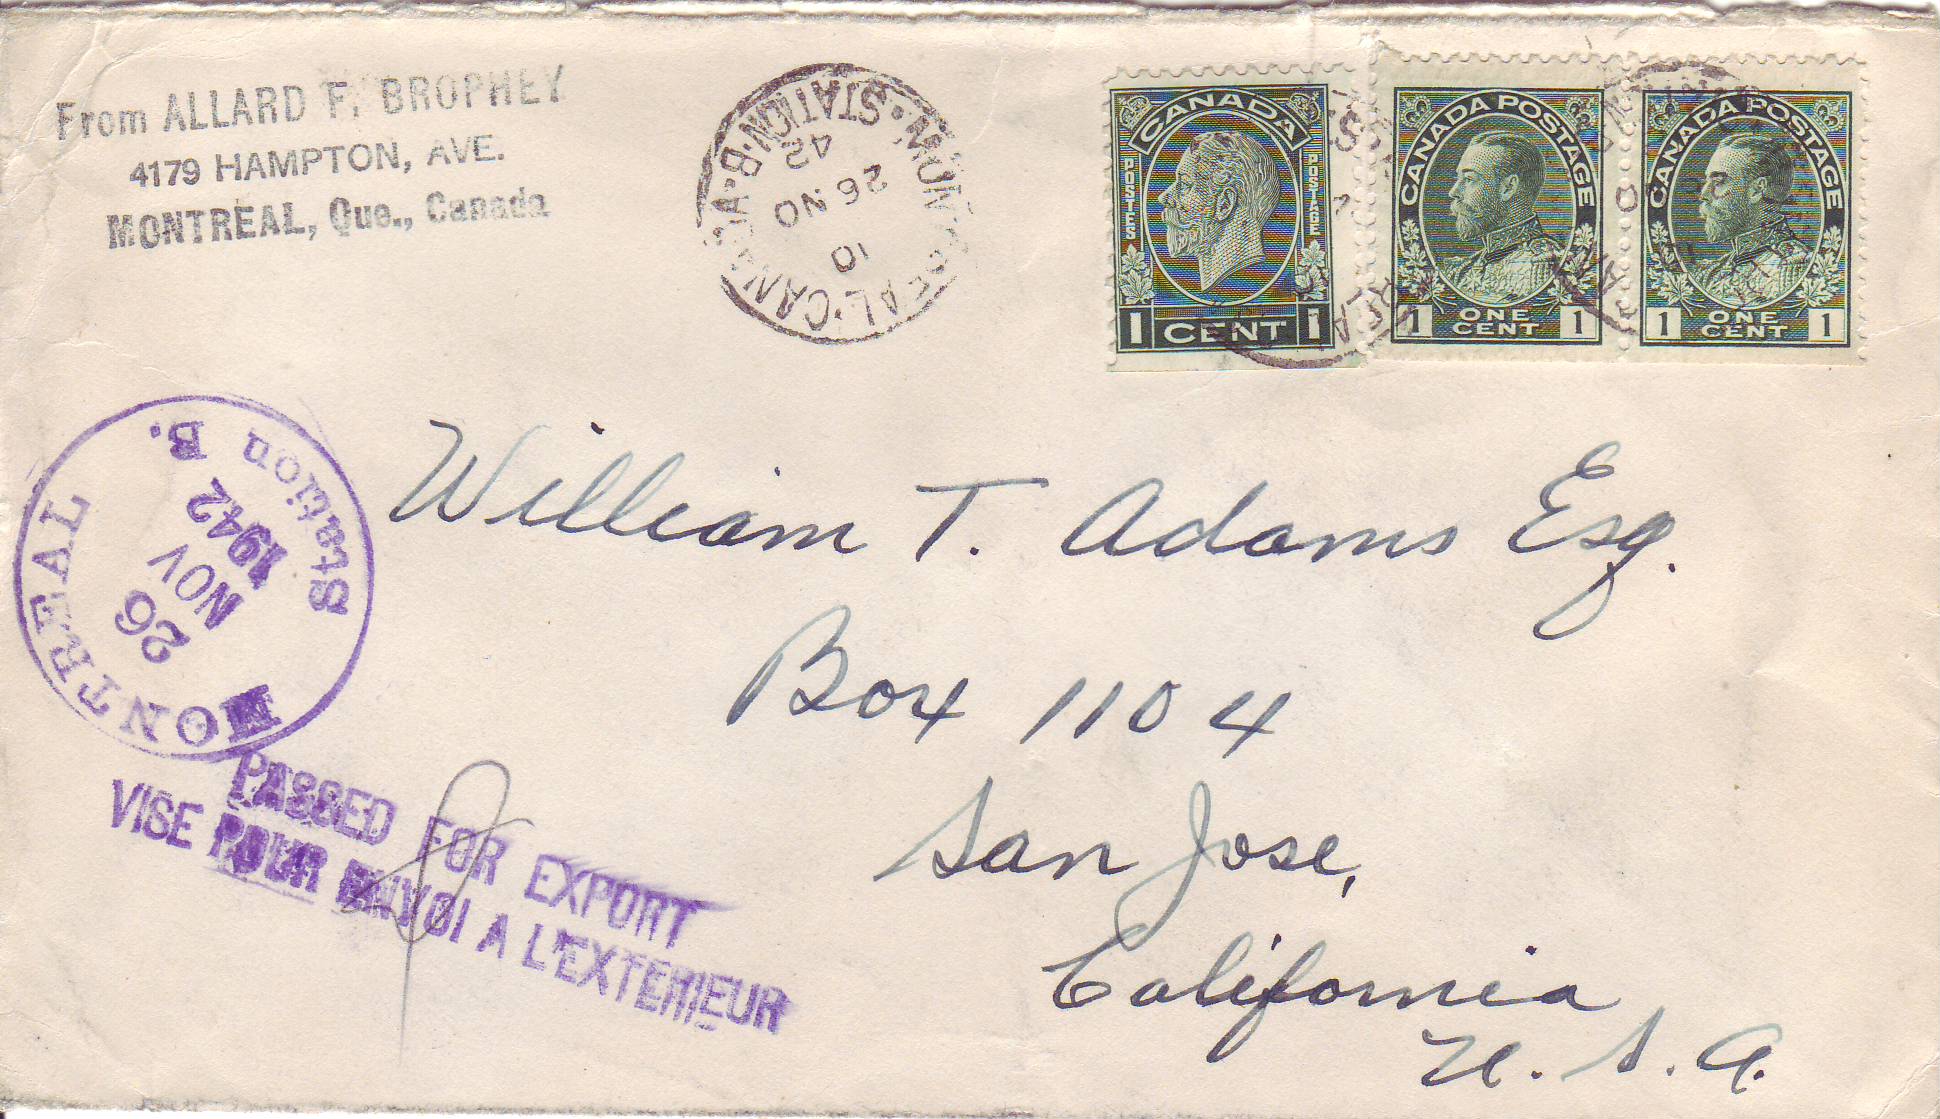 From ALLARD F. BROPHEY
4179 HAMPTON, AVE.
MONTREAL, Que., Canada
MONTREAL·CANADA·
STATION·B·
10
26 NO
42
CANADA
POSTES
POSTAGE
1 CENT 1
CANADA POSTAGE
1 ONE CENT 1
CANADA POSTAGE
1 ONE CENT 1
MONTREAL
Station B.
26
NOV
1942
William T. Adams Esq.
Box 1104
San Jose,
California
U. S. A.
PASSED FOR EXPORT
VISE POUR ENVOI A L'EXTERIEUR